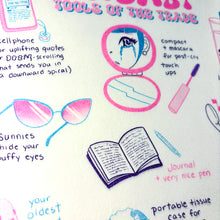 TOOLS OF THE TRADE
cellphone
for uplifting quotes
or DOOM-scrolling
that sends you in
a downward spiral)
compact
+ mascara
for post-cry
touch
ups
sunnies
hide your
puffy eyes
journal
+ very nice pen
your
oldest
portable tissue
case for